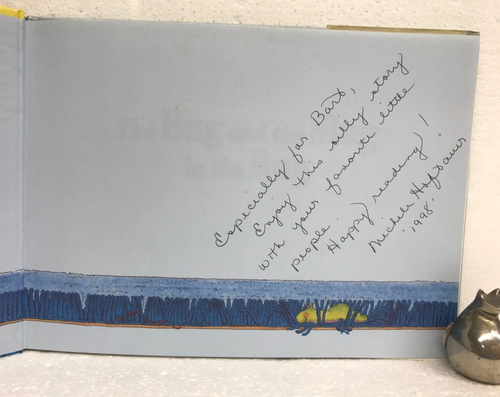 Especially for Bart,
Enjoy this silly story
with your favorite little
people. Happy reading!
Michele Hofbauer
'1998'
The and the
in the